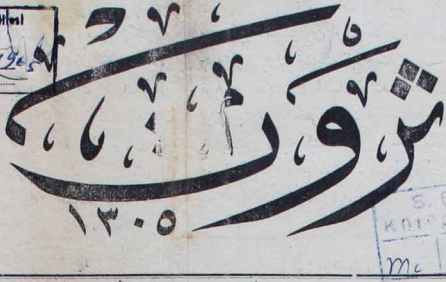 ثروت
١٣٠٥